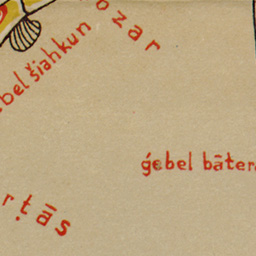 ozar
bel šiahkun
ǵebel bāter
rṭās